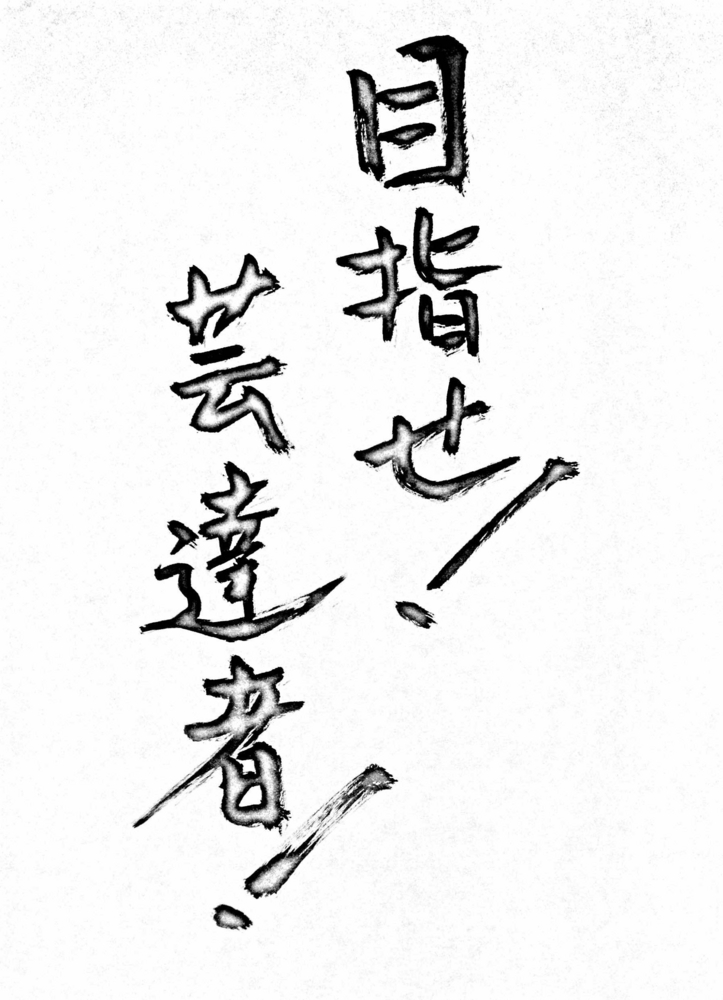 目指せ!
芸達者!